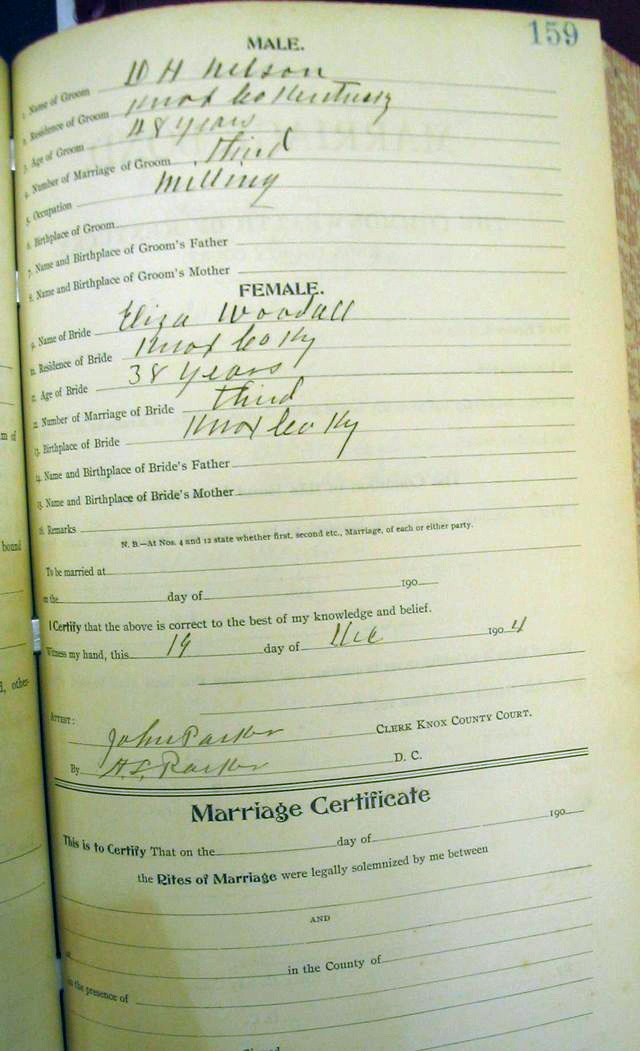 159
MALE.
1. Name of Groom W H Nelson
2. Residence of Groom Knox Co Kentucky
3. Age of Groom 48 years
4. Number of Marriage of Groom third
5. Occupation Milling
6. Birthplace of Groom
7. Name and Birthplace of Groom's Father
8. Name and Birthplace of Groom's Mother
FEMALE.
9. Name of Bride Eliza Woodall
10. Residence of Bride Knox Co Ky
11. Age of Bride 38 years
12. Number of Marriage of Bride third
13. Birthplace of Bride Knox Co Ky
14. Name and Birthplace of Bride's Father
15. Name and Birthplace of Bride's Mother
16. Remarks
N. B.—At Nos. 4 and 12 state whether first, second etc., Marriage, of each or either party.
To be married at
on the day of 190
I Certify that the above is correct to the best of my knowledge and belief.
Witness my hand, this 19 day of Dec 1904
ATTEST:
John Parker CLERK KNOX COUNTY COURT.
By Parker D. C.
Marriage Certificate
This is to Certify That on the day of 190
the Rites of Marriage were legally solemnized by me between
AND
at in the County of
in the presence of
Signed
m of
bound
d, other-